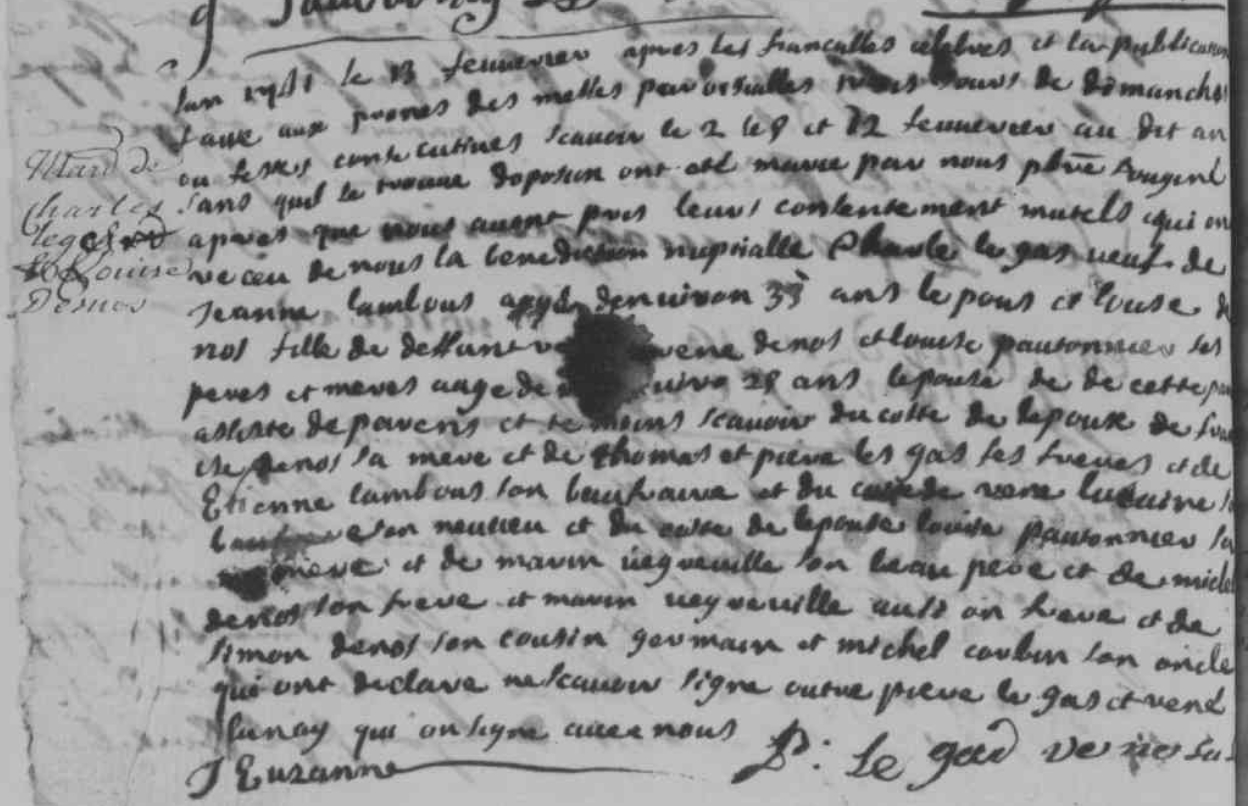 Mard de
Charles
legas
& Louise
Denos
lan le 13 feuuerier apres les fiancalles celebres et la publication
faite aux prones des messes paroissialles trois jours de dimanche
ou festes consecutiues scauoir le 2 le 9 et 12 feuuerier au dit an
sans quil se trouue doposion ont esté marie par nous pbre
apres que nous auont pris leurs contentement mutels qui on
receu de nous la benediction nupsialle Charle le gas ueuf de
Jeanne lambous denuiron 35 ans lepous et louise de
nos fille de deffunt rene denos et louise pautonnier ses
peres et meres auge de 28 ans lepouse de de cette
assiste de parens et temoins scauoir du coste de lepouse de
denos sa mere et de thomas et piere les gas ses freres et de
Etienne lambous son beaufraire et du rene
son neuueu et du coste de lepouse louise pautonnier sa
mere et de marin uegreuille son beau pere et de michel
denos son frere et marin uegreuille ausi on frere et de
simon denos son cousin germain et michel corbin son oncle
qui ont declare ne scauoir signe outre piere le gas et rene
lunay qui on signe auec nous
J Euzanne P: le gad rene